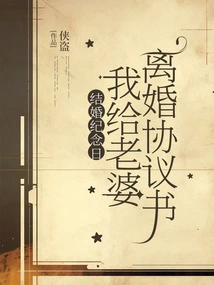 侠盗
[作品]
结婚纪念日
我给老婆
离婚协议书